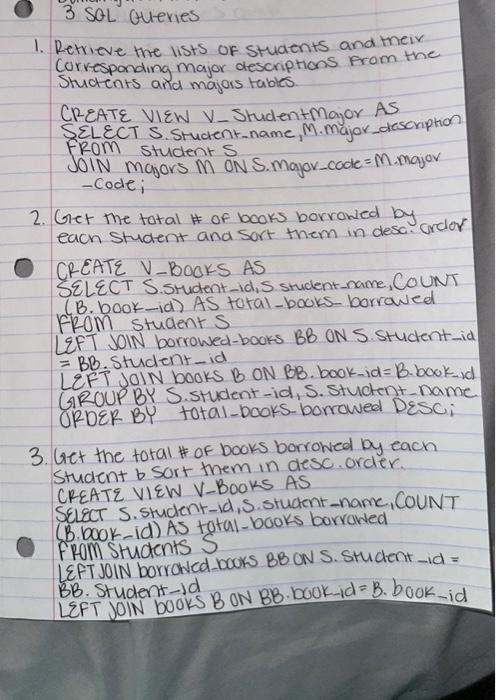 3 SQL Queries
1. Retrieve the lists of students and their
corresponding major descriptions from the
Students and majors tables.
CREATE VIEW V_StudentMajor AS
SELECT S.Student_name, M.major_description
FROM Student S
JOIN majors M ON S.major_code = M.major
_Code;
2. Get the total # of books borrowed by
each student and sort them in desc. order
CREATE V_Books AS
SELECT S.student_id, S.student_name, COUNT
(B.book_id) AS total_books_borrowed
FROM student S
LEFT JOIN borrowed_books BB ON S.student_id
= BB.student_id
LEFT JOIN books B ON BB.book_id = B.book_id
GROUP BY S.student_id, S.student_name
ORDER BY total_books_borrowed DESC;
3. Get the total # of books borrowed by each
student & sort them in desc. order.
CREATE VIEW V_Books AS
SELECT S.student_id, S.student_name, COUNT
(B.book_id) AS total_books borrowed
FROM Students S
LEFT JOIN borrowed_books BB ON S.student_id =
BB.student_id
LEFT JOIN books B ON BB.book_id = B.book_id